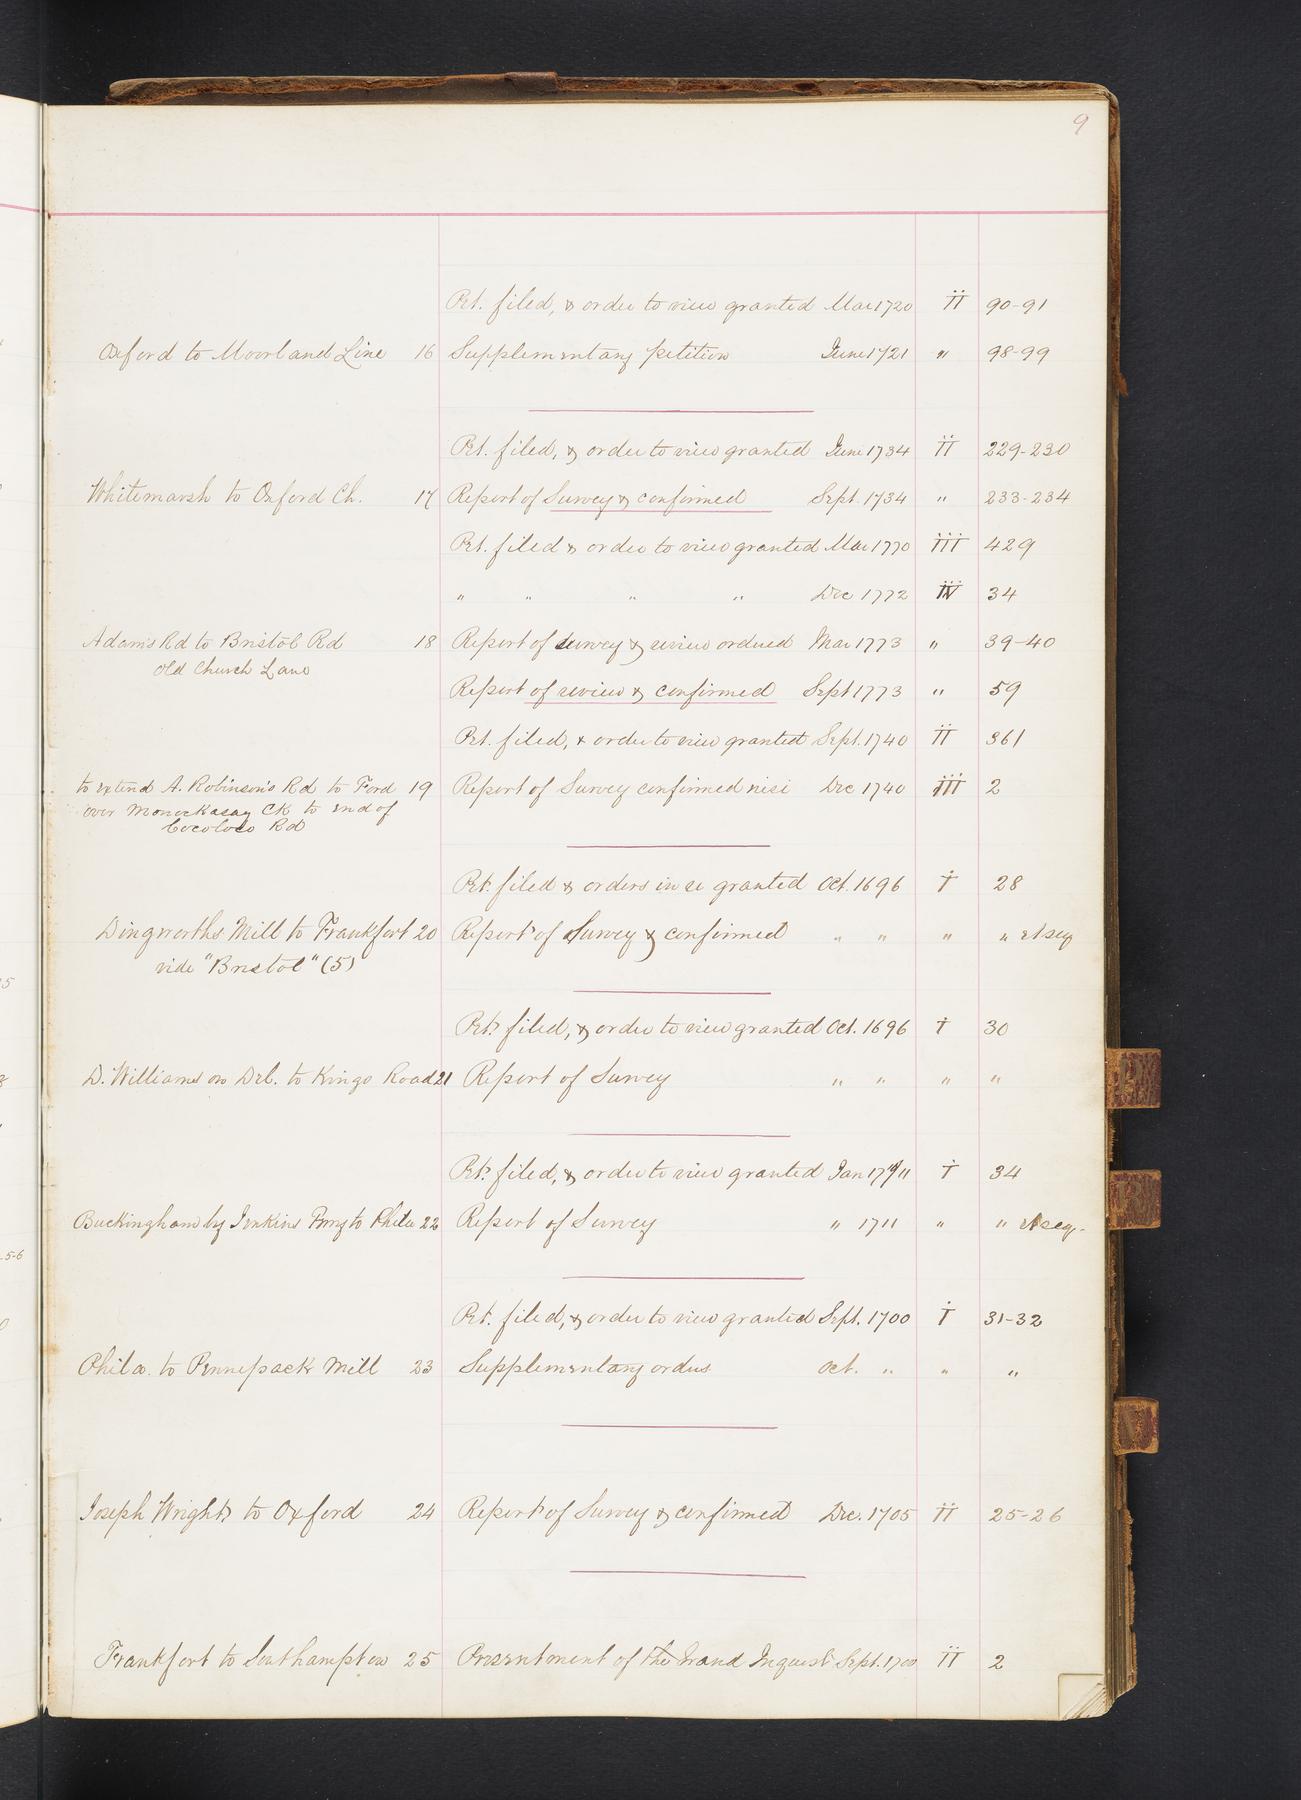 9
Pet. filed, & order to view granted Mar 1720 II 90-91
Oxford to Moorland Line 16 Supplementary petition June 1721 " 98-99
Pet. filed, & order to view granted June 1734 II 229-230
Whitemarsh to Oxford Ch. 17 Report of Survey & confirmed Sept. 1734 " 233-234
Pet. filed & order to view granted Mar 1770 III 429
" " " " Dec 1772 IV 34
Adams Rd to Bristol Rd 18 Report of survey & review ordered Mar 1773 " 39-40
Old Church Lane
Report of review & confirmed Sept 1773 " 59
Pet. filed, & order to view granted Sept. 1740 II 361
to extend A. Robinson's Rd to Ford 19 Report of Survey confirmed nisi Dec 1740 III 2
over Monockasay Ck to end of
Rd
Pet. filed & orders in re granted Oct. 1696 I 28
Dingworths Mill to Frankfort 20 Report of Survey & confirmed " " " " et seq
vide "Bristol" (5)
Pet. filed, & order to view granted Oct. 1696 I 30
D. Williams on Del. to Kings Road 21 Report of Survey " " " "
Pet. filed, & order to view granted Jan 17 11 I 34
Buckingham by Jenkins to Phila 22 Report of Survey " 1711 " " et seq.
5-6
Pet. filed, & order to view granted Sept. 1700 I 31-32
Phila. to Pennepack Mill 23 Supplementary orders Oct. " " "
Joseph Wrights to Oxford 24 Report of Survey & confirmed Dec. 1705 II 25-26
Frankfort to Southampton 25 Presentment of the Grand Inquest Sept. 1700 II 2